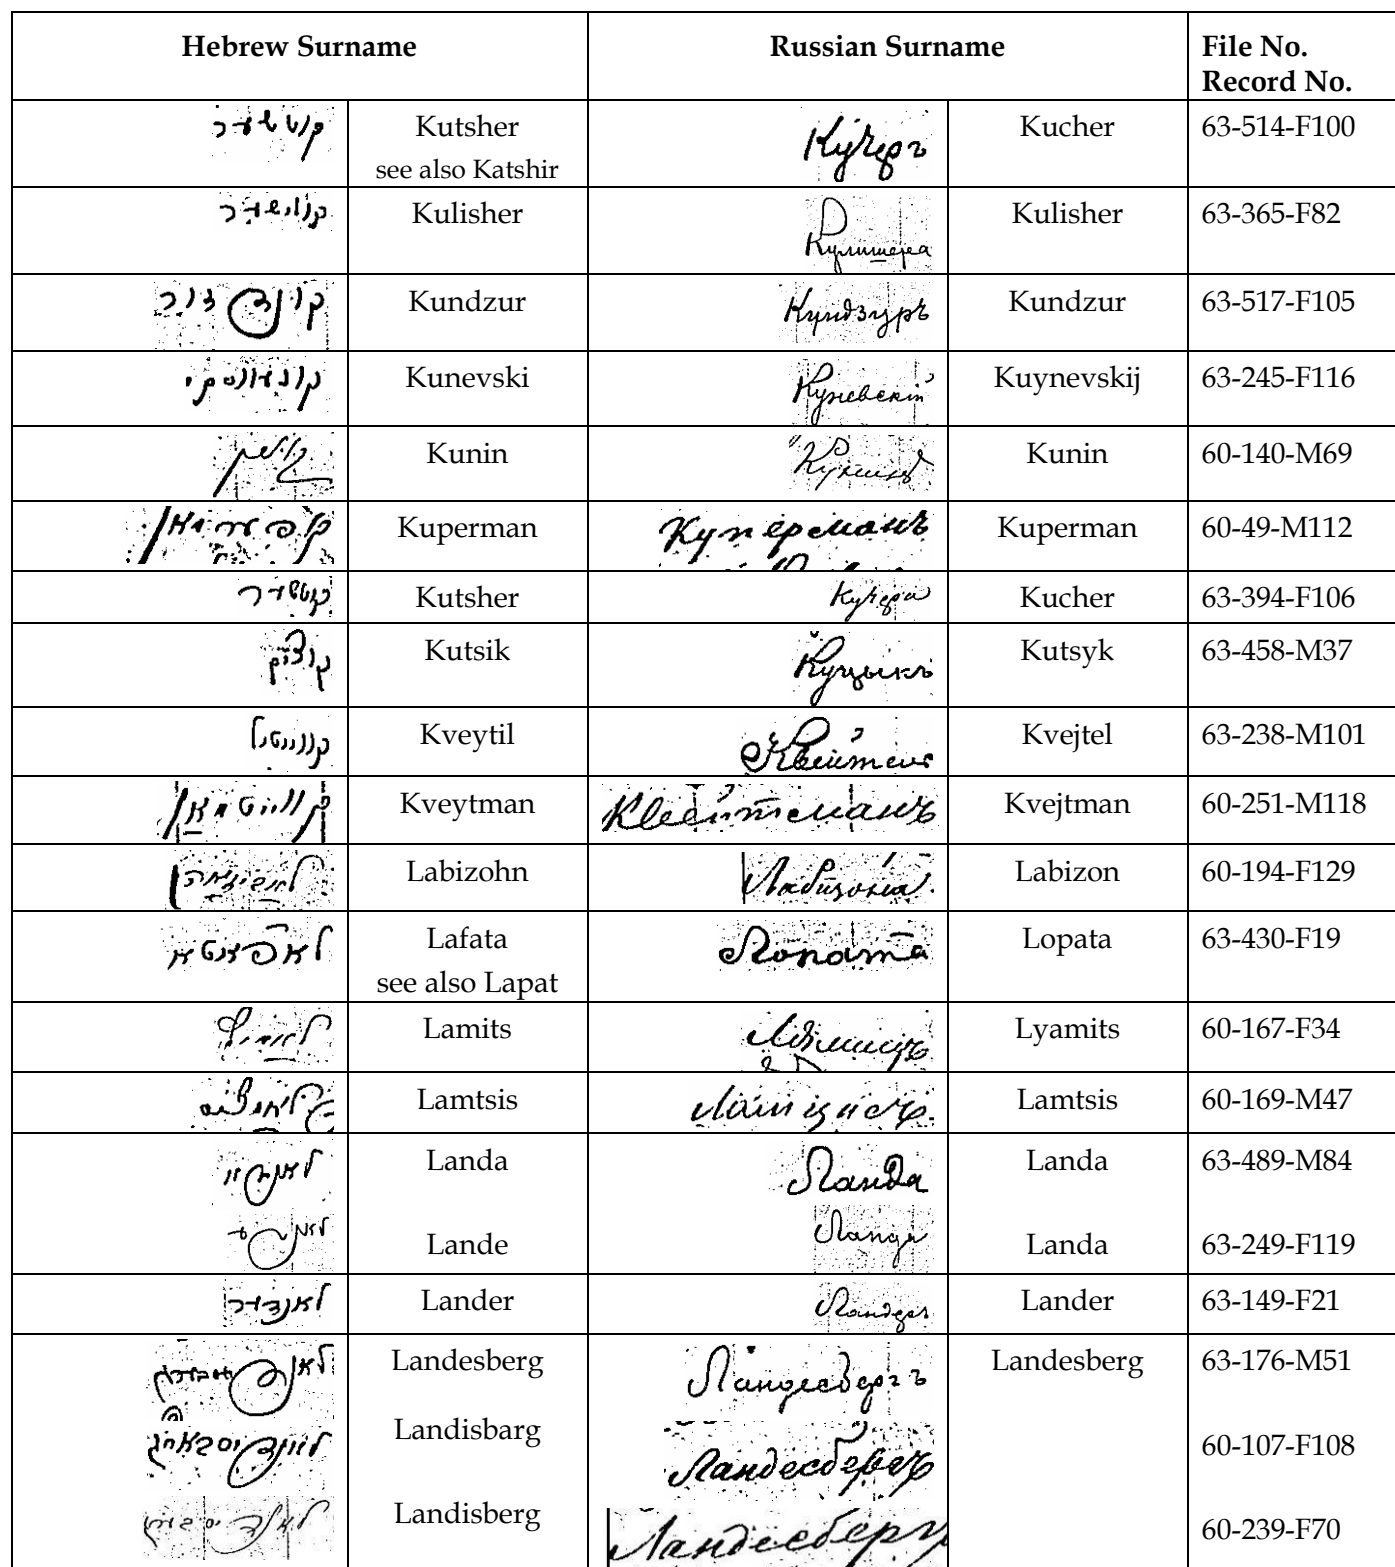 Hebrew Surname Russian Surname File No.
Record No.
קוטשער Kutsher Кучеръ Kucher 63-514-F100
see also Katshir
קולישער Kulisher Кулишера Kulisher 63-365-F82
קונדזור Kundzur Кундзуръ Kundzur 63-517-F105
קונעווסקי Kunevski Куневскій Kuynevskij 63-245-F116
Kunin Кунинъ Kunin 60-140-M69
Kuperman Куперманъ Kuperman 60-49-M112
קוטשער Kutsher Кучера Kucher 63-394-F106
קוציק Kutsik Куцыкъ Kutsyk 63-458-M37
קווייטיל Kveytil Квейтель Kvejtel 63-238-M101
קווייטמאן Kveytman Квейтманъ Kvejtman 60-251-M118
Labizohn Лабизона Labizon 60-194-F129
לאפאטא Lafata Лопата Lopata 63-430-F19
see also Lapat
לאמיץ Lamits Лямицъ Lyamits 60-167-F34
Lamtsis Ламцисъ Lamtsis 60-169-M47
Landa Ланда Landa 63-489-M84
לאנדע Lande Ланда Landa 63-249-F119
לאנדער Lander Ландер Lander 63-149-F21
Landesberg Ландесбергъ Landesberg 63-176-M51
Landisbarg Ландесбергъ 60-107-F108
Landisberg Ландесбергъ 60-239-F70